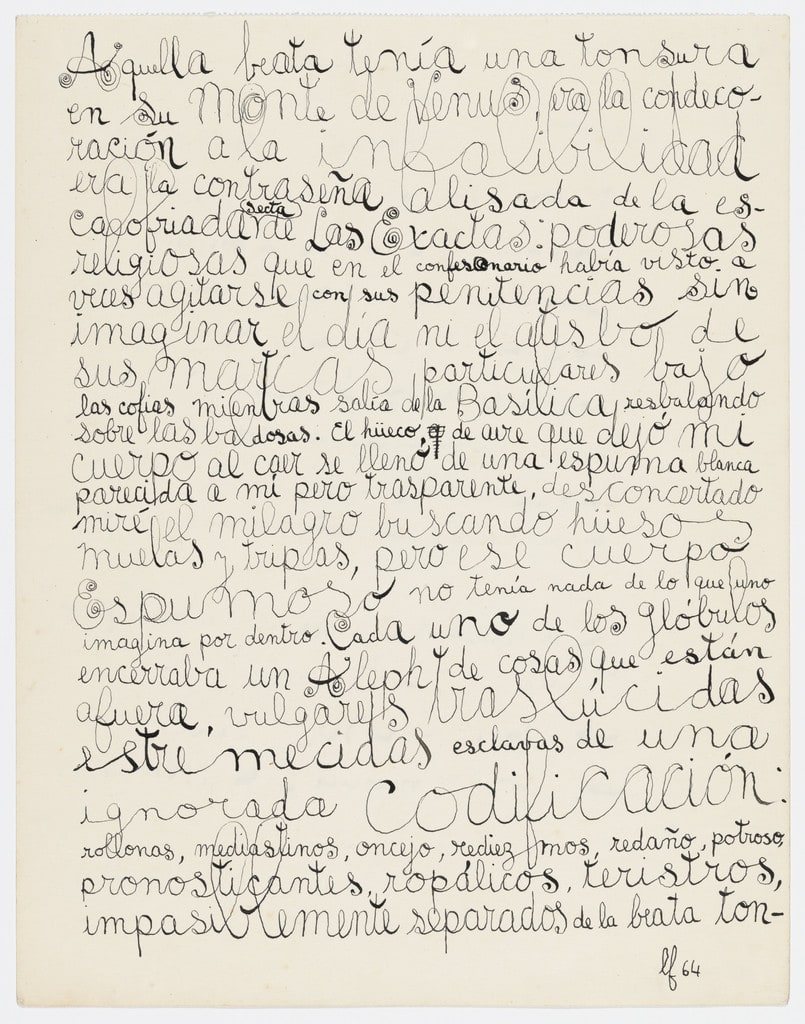 Aquella beata tenía una tonsura
en su Monte de Venus, era la condeco-
ración a la infalibilidad
era la contraseña alisada de la es-
calofriadante secta Las Exactas: poderosas
religiosas que en el confesonario había visto a
veces agitarse con sus penitencias sin
imaginar el día ni el atisbo de
sus marcas particulares bajo
las cofias mientras salía de la Basílica, resbalando
sobre las baldosas. El hüeco de aire que dejó mi
cuerpo al caer se llenó de una espuma blanca
parecida a mí pero trasparente, desconcertado
miré el milagro buscando hüesos
muelas y tripas, pero ese cuerpo
Espumoso no tenía nada de lo que uno
imagina por dentro. Cada uno de los glóbulos
encerraba un Aleph de cosas que están
afuera, vulgares traslúcidas
estremecidas esclavas de una
ignorada Codificación:
rollonas, mediastinos, oncejo, rediezmos, redaño, potroso,
pronosticantes, ropálicos, teristros,
impasiblemente separados de la beata ton-
lf 64